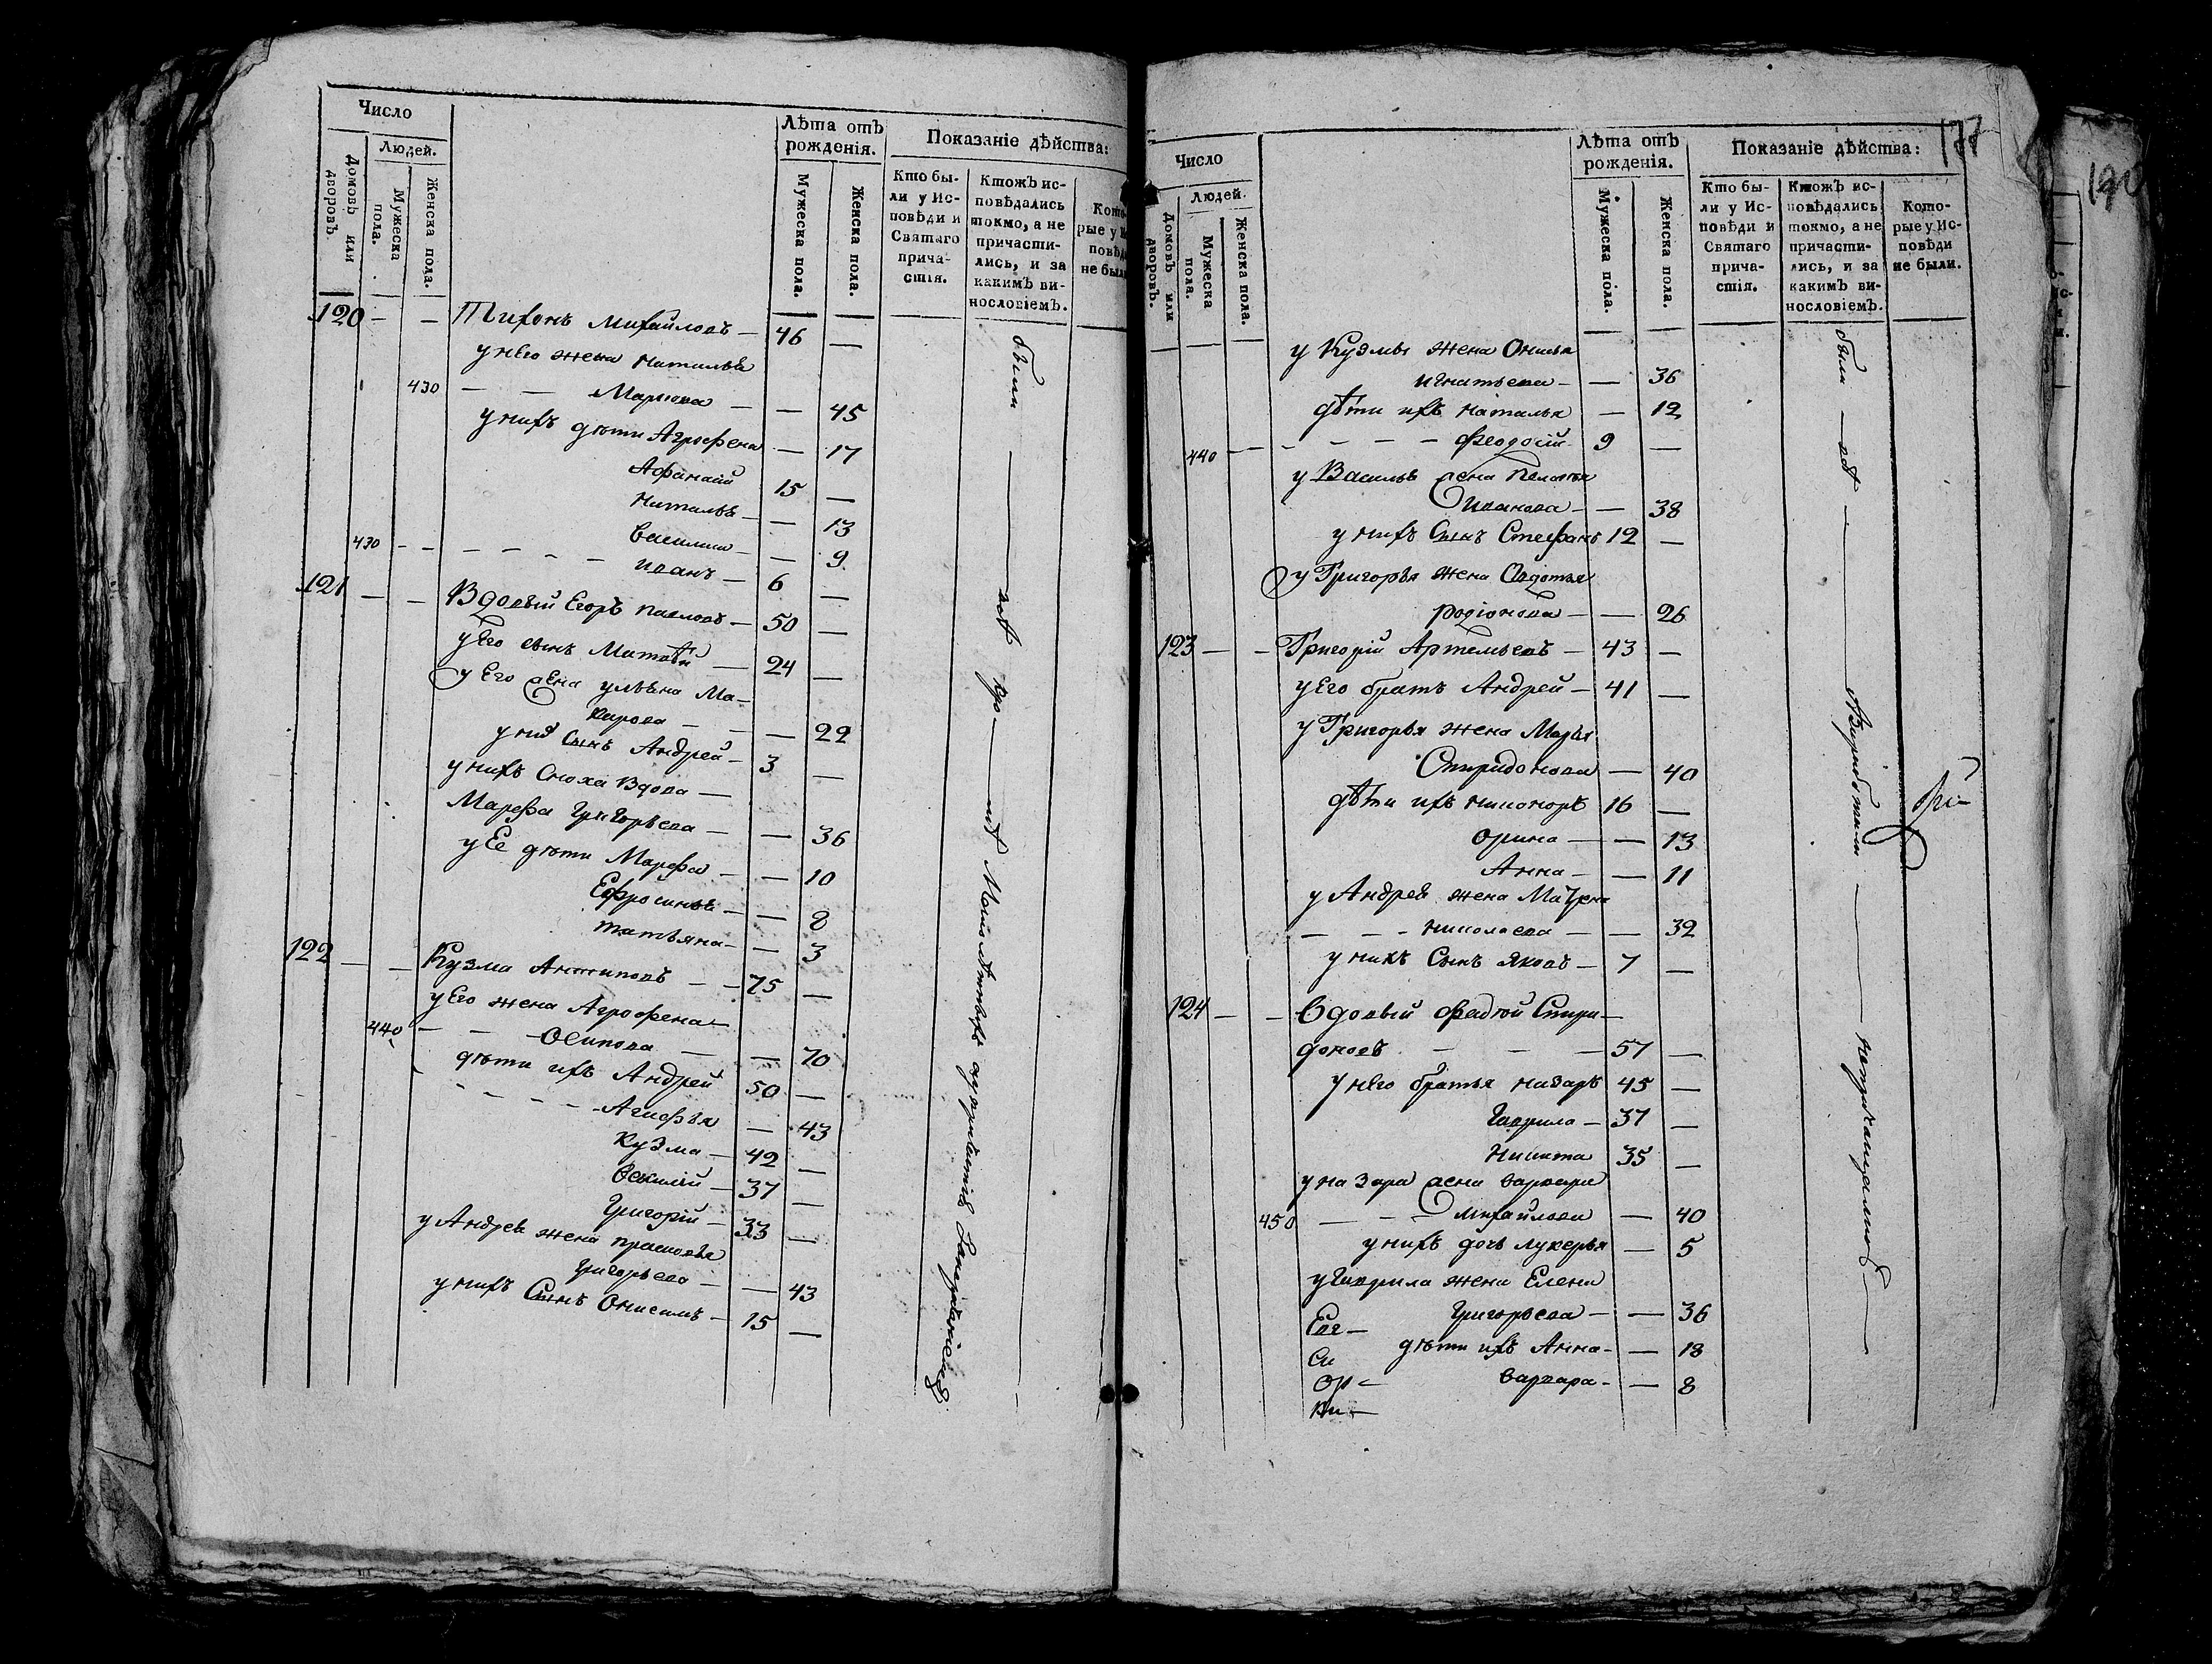 Число
Людей.
Домовъ или дворовъ.
Мужеска пола.
Женска пола.
Лѣта отъ рожденія.
Мужеска пола.
Женска пола.
Показаніе дѣйства:
Кто были у Исповѣди и Святаго причастія.
Ктожъ исповѣдались токмо, а не причастились, и за какимъ винословіемъ.
120 — — Тихонъ Михайловъ — 46 —
у него жена Наталья
430 — — Маркова — — 45
у нихъ дѣти Агрофена — 17
Афанасій 15 —
Наталья — — 13
Василиса — — 9
430 — — — — — — Иванъ — 6 —
121 — — Вдовый Егоръ Павловъ — 50 —
у Его сынъ Матвѣй — 24 —
у Его жена Ульяна Ма-
карова — — 22
у нихъ сынъ Андрей — 3 —
у нихъ Сноха Вдова —
Марфа Григорьева — — 36
у Ее дѣти Марфа — — 10
Ефросинья — — 8
татьяна — — 3
122 — — Кузма Антиповъ — — 75 —
у Его жена Агрофена —
440 — — Осипова — — 70
дѣти ихъ Андрей 50 —
— — — — Агафья — 43
Кузма — 42 —
Василій — 37 —
Григорій — 33 —
у Андрея жена прасковья
Григорьева — — 43
у нихъ Сынъ Онисимъ — 15 —
были
177
190
Число
Людей.
Домовъ или дворовъ.
Мужеска пола.
Женска пола.
Лѣта отъ рожденія.
Мужеска пола.
Женска пола.
Показаніе дѣйства:
Кто были у Исповѣди и Святаго причастія.
Ктожъ исповѣдались токмо, а не причастились, и за какимъ винословіемъ.
Которые у Исповѣди не были.
у Кузмы жена
игнатьева — — 36
дѣти ихъ наталья — 12
440 — — — — — — феодосій 9 —
у Василья жена Пелагея
Иванова — — 38
у нихъ Сынъ Стефанъ 12 —
у Григорья жена Авдотья
родіонова — — 26
123 — — Григорій Артемьевъ — 43 —
у Его братъ Андрей — 41 —
у Григорья жена Марья
Спиридонова — 40
дѣти ихъ никоноръ 16 —
орина — — 13
Анна — — 11
у Андрея жена Матрена
— — — николаева — — 32
у нихъ Сынъ Яковъ — 7 —
124 — — Вдовый Спири-
доновъ — — — 57 —
у него братья назаръ 45 —
Гаврила — 37 —
Никита 35 —
у назара жена варвара
450 — — — михайлова — 40
у нихъ дочь лукерья — 5
у Гаврила жена Елена
Григорьева — — 36
дѣти ихъ Анна — — 18
варвара — — 8
были